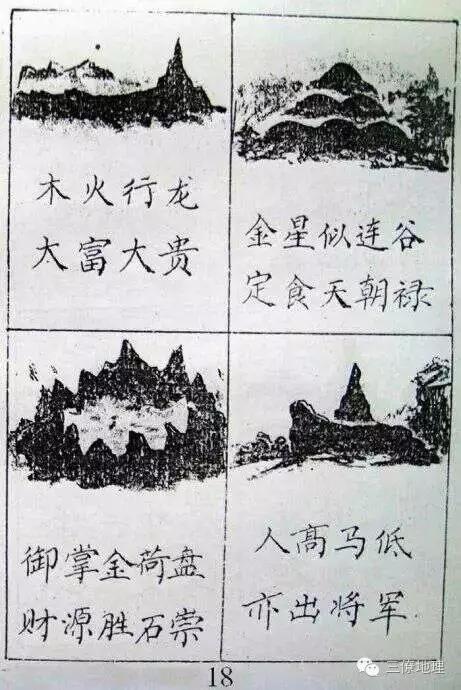 木火行龙
大富大贵
金星似连谷
定食天朝禄
御掌金荷盘
财源胜石崇
人高马低
亦出将军
18
三僚地理